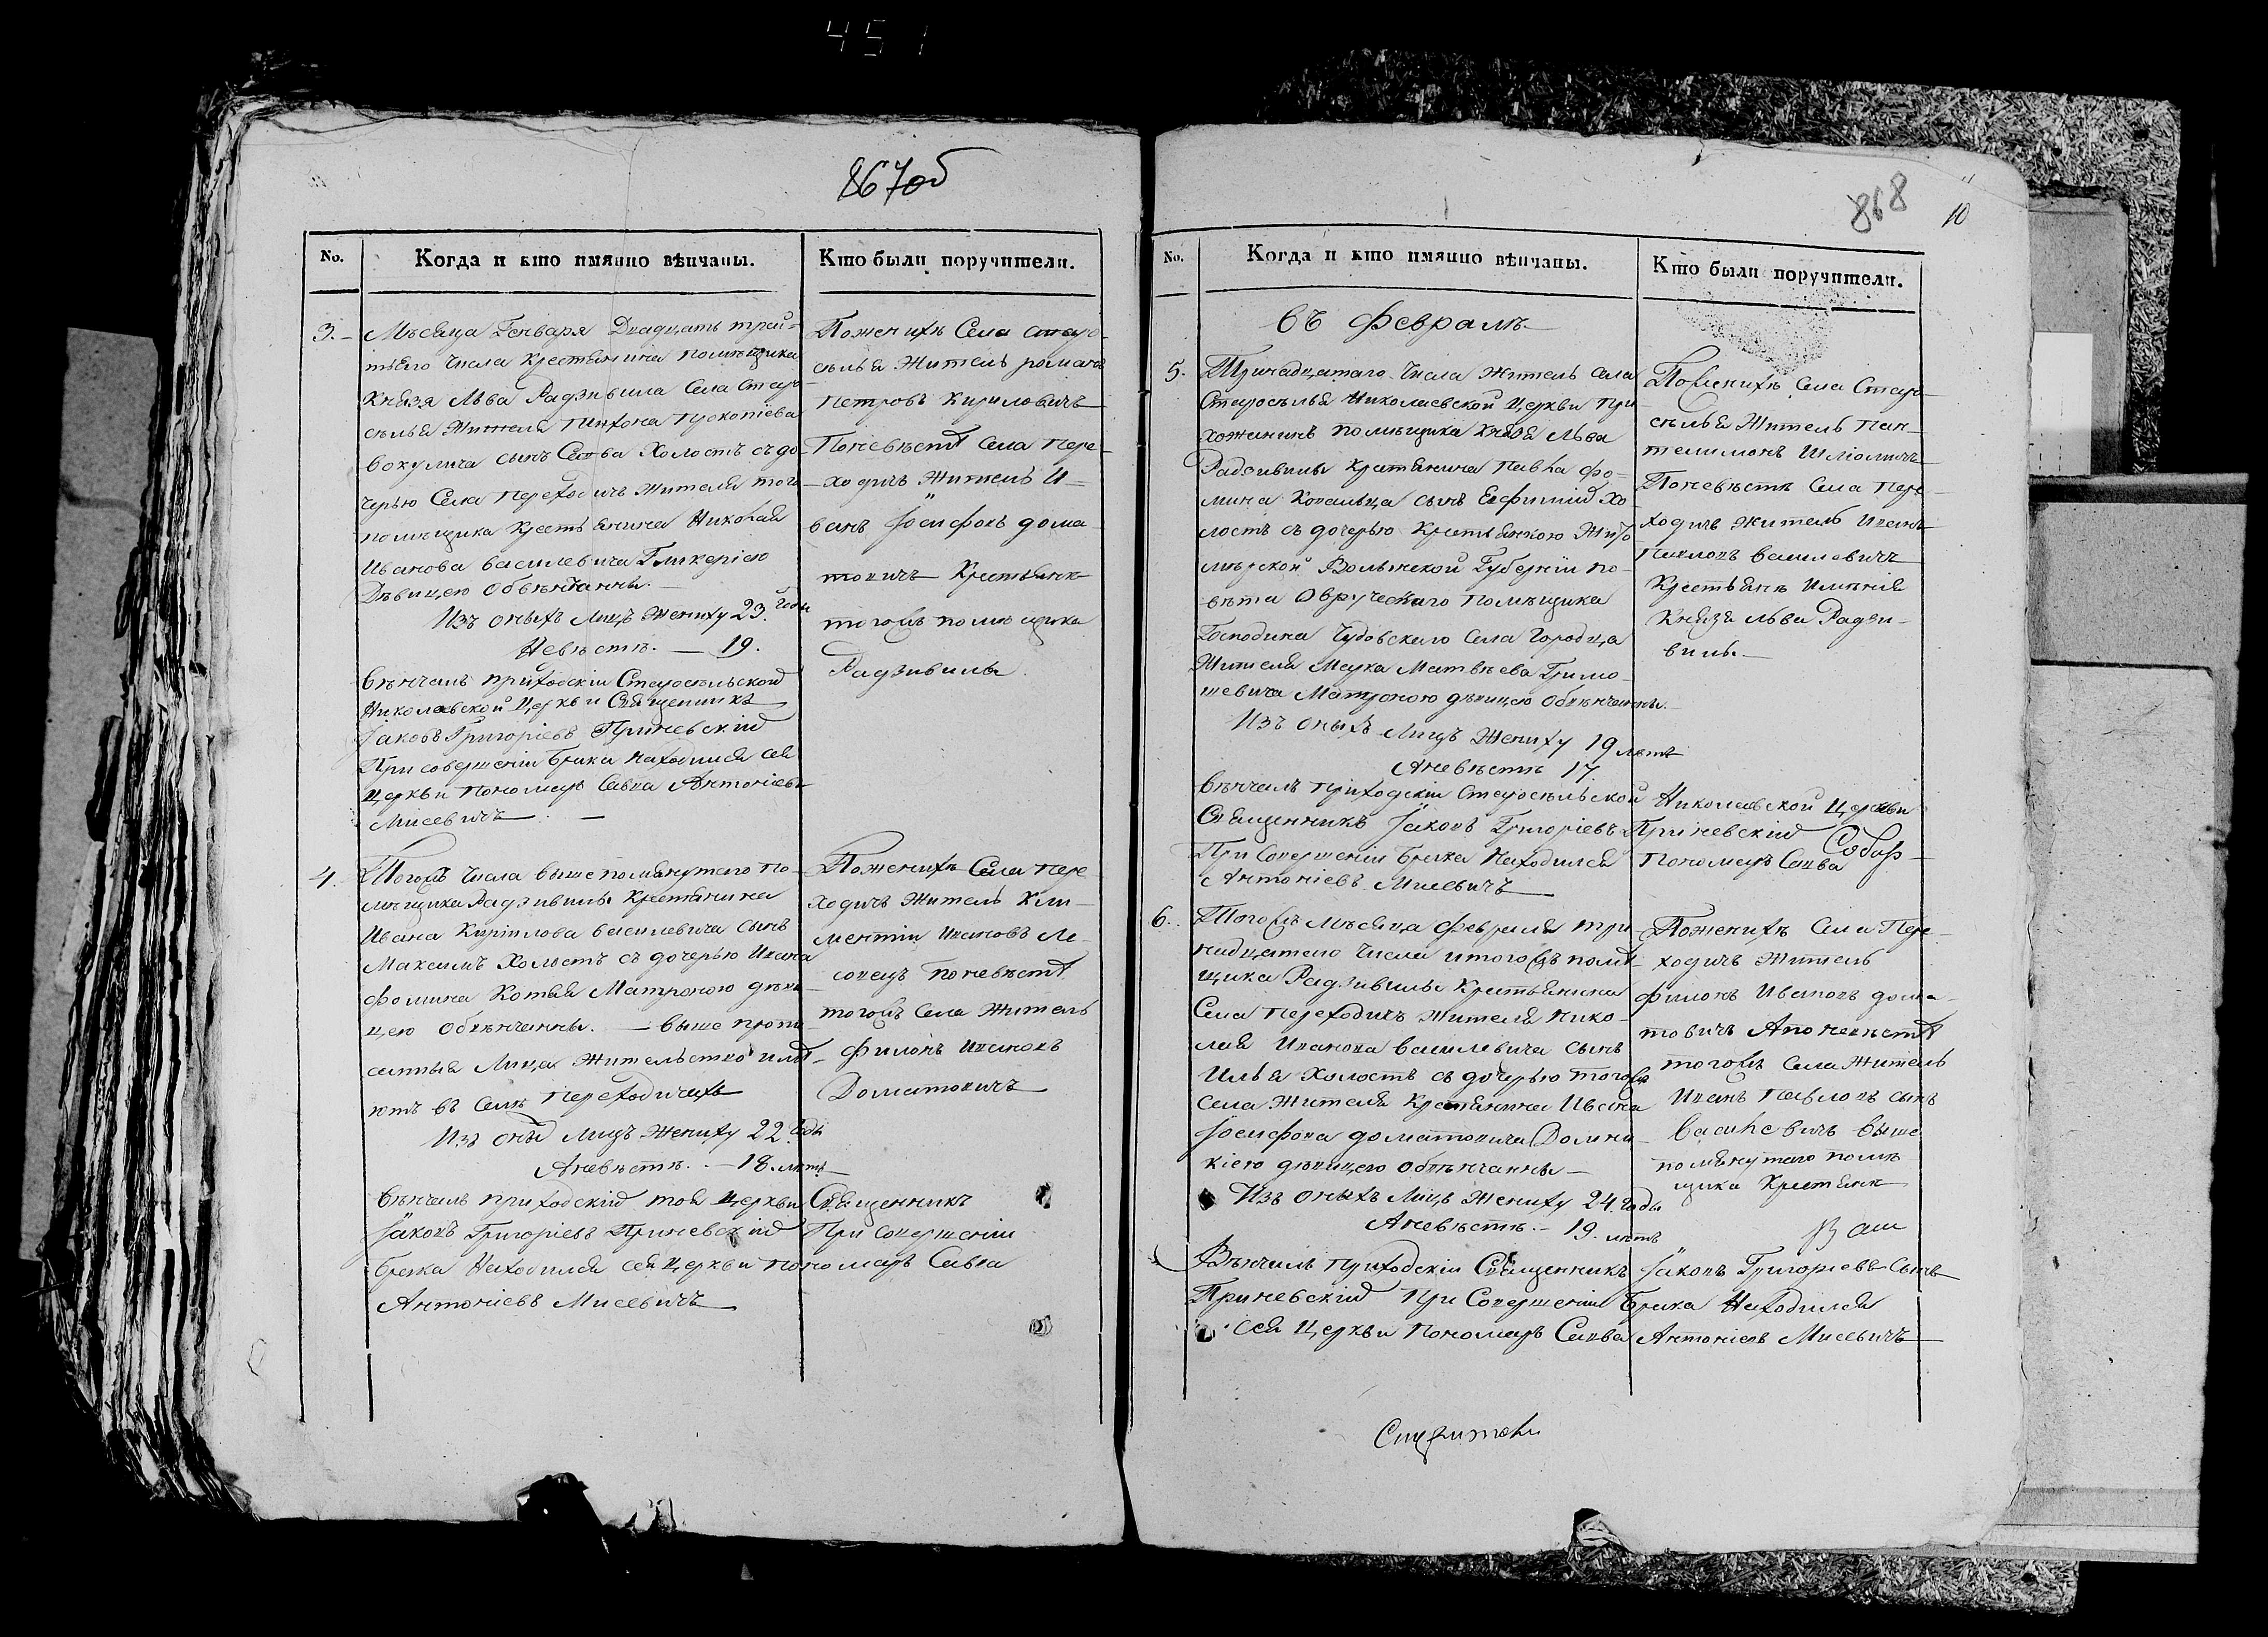 451
867 об
No. Когда и кто имянно вѣнчаны. Кто были поручители.
3. Мѣсяца Генваря Двадцать трей-
тьего Числа Крестьянина помѣщика
Князя Льва Радзивила Села Старо-
сѣлья Жителя Прокопіева
сынъ Савва Холостъ съ до-
черью Села Переходичъ Жителя того
помѣщика Крестьянина Николая
Иванова Василевича Гликеріею
Дѣвицею Обвѣнчанны.
Изъ оныхъ Лицъ Жениху 23. года
Невѣстѣ. — 19.
Вѣнчалъ приходскій Старосѣльской
Николаевской Церкви Священникъ
Іаковъ Григоріевъ Приневскій
При совершеніи Брака Находился сея
Церкви Пономарь Савва Антоніевъ
Мисевичъ
По женихѣ Села Старо-
сѣлья Житель романъ
Петровъ Кириловичъ
По невѣстѣ Села Пере-
ходичъ Житель И-
ванъ Іосифовъ дома-
товичъ Крестьяне
тогожъ помѣщика
Радзивила
4. Тогожъ Числа вышепомянутаго По-
мѣщика Радзивила Крестьянина
Ивана Кирилова Василевича сынъ
Максимъ Холостъ съ дочерью Ивана
Фомина Котая Матроною дѣви-
цею Обвѣнчанны. — выше пропи-
санныя Лица Жительство имѣ-
ютъ въ Селѣ Переходичахъ
Изъ оныхъ Лицъ Жениху 22. года
А невѣстѣ. — 18. лѣтъ
Вѣнчалъ приходскій тоя Церкви Священникъ
Іаковъ Григоріевъ Приневскій При совершеніи
Брака Находился сея Церкви Пономарь Савва
Антоніевъ Мисевичъ
По женихѣ Села Пере-
ходичъ Житель Кли-
ментій Ивановъ Ле-
совецъ По невѣстѣ
тогожъ Села Житель
Филонъ Ивановъ
Доматовичъ
868 10
No. Когда и кто имянно вѣнчаны. Кто были поручители.
Въ Февралѣ
5. Тринадцатаго Числа Житель Села
Старосѣлья Николаевской Церкви При-
хожанинъ помѣщика Князя Льва
Радзивилы Крестьянина Павла Фо-
мина Ковальца сынъ Евфимій Хо-
лостъ съ дочерью Крестьянкою Жито-
мѣрской Волынской Губерніи по-
вѣта Овруческаго Помѣщика
Господина Чудовскаго Села Городца
Жителя Марка Матвѣева Гримо-
шевича Матроною дѣвицею Обвѣнчанны.
Изъ оныхъ Лицъ Жениху 19 лѣтъ
А невѣстѣ 17.
Вѣнчалъ Приходскій Старосѣльской Николаевской Церкви
Священникъ Іаковъ Григоріевъ Приневскій
При Совершеніи Брака Находился Пономарь Савва
Антоніевъ Мисевичъ
По женихѣ Села Старо-
сѣлья Житель Пан-
телимонъ
По невѣстѣ Села Пере-
ходичъ Житель Иванъ
Павловъ Василевичъ
Крестьяне Имѣнія
Князя Льва Радзи-
вилы.
6. Тогожъ Мѣсяца Февраля три-
надцатаго Числа и тогожъ помѣ-
щика Радзивилы Крестьянина
Села Переходичъ Жителя Нико-
лая Иванова Василевича сынъ
Илья Холостъ съ дочерью тогожъ
Села Жителя Крестьянина Ивана
Іосифова доматовича Домни-
кіею дѣвицею обвѣнчанны
Изъ оныхъ Лицъ Жениху 24. года
А невѣстѣ. — 19. лѣтъ
Вѣнчалъ Приходскій Священникъ Іаковъ Григоріевъ Сынъ
Приневскій При Совершеніи Брака Находился
Сея Церкви Пономарь Савва Антоніевъ Мисевичъ
По женихѣ Села Пере-
ходичъ Житель
Филонъ Ивановъ дома-
товичъ А по невѣстѣ
тогожъ Села Житель
Иванъ Павловъ сынъ
Василевичъ выше-
помянутаго помѣ-
щика Крестьяне